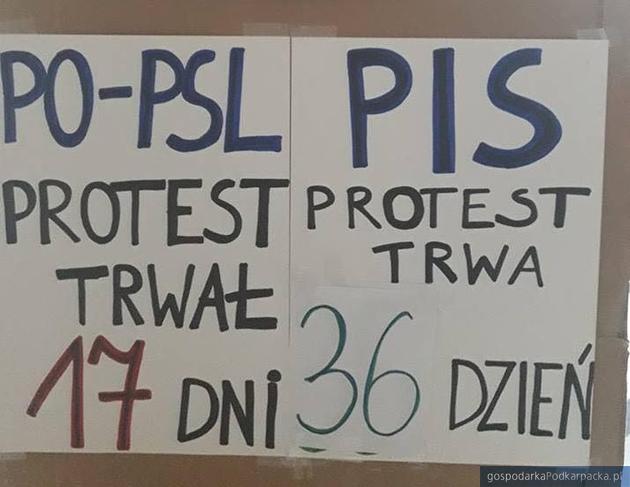 PO-PSL
PROTEST
TRWAŁ
17 DNI
PIS
PROTEST
TRWA
36 DZIEŃ
gospodarkaPodkarpacka.pl